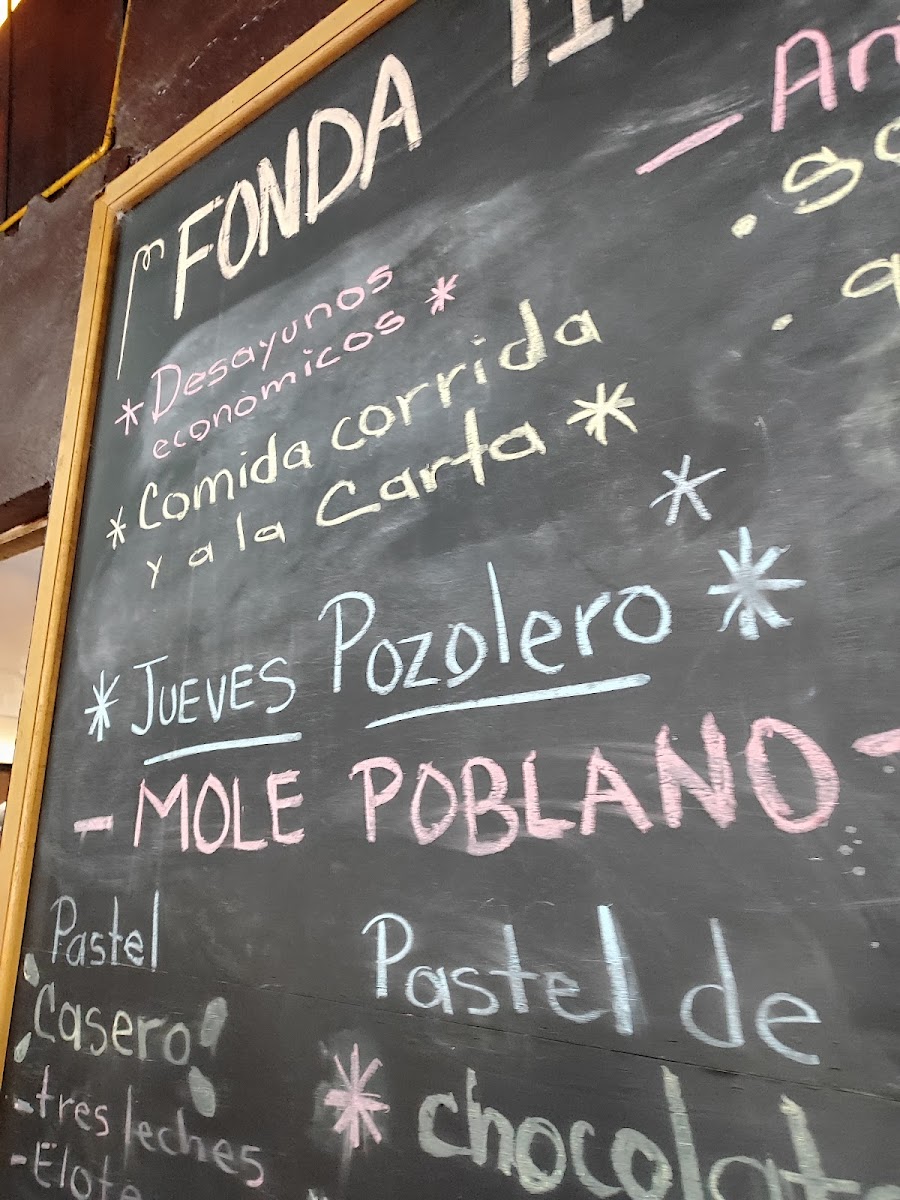 FONDA
* Desayunos
economicos *
* Comida corrida
y a la Carta *
* JUEVES Pozolero *
- MOLE POBLANO -
Pastel
¡Casero!
- tres leches
- Elote
Pastel de
* chocolat